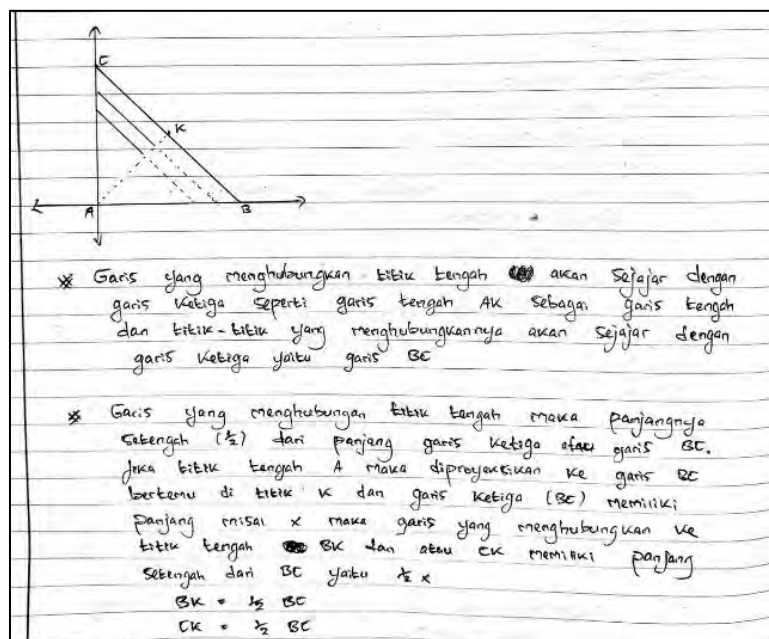 C
K
A
B
* Garis yang menghubungkan titik tengah akan sejajar dengan
garis ketiga seperti garis tengah AK sebagai garis tengah
dan titik-titik yang menghubungkannya akan sejajar dengan
garis ketiga yaitu garis BC
* Garis yang menghubungan titik tengah maka panjangnya
setengah (½) dari panjang garis ketiga atau garis BC.
Jika titik tengah A maka diproyeksikan ke garis BC
bertemu di titik K dan garis ketiga (BC) memiliki
panjang misal x maka garis yang menghubungkan ke
titik tengah BK dan atau CK memiliki panjang
setengah dari BC yaitu ½ x
BK = ½ BC
CK = ½ BC